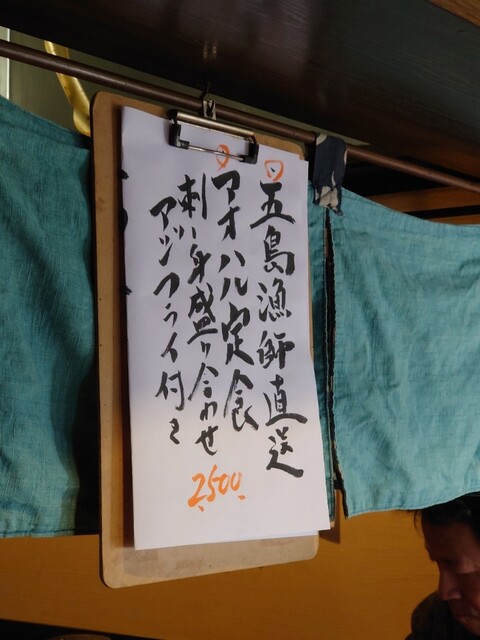 五島漁師直送
アオハル定食
刺し身盛り合わせ
アジフライ付き
2500